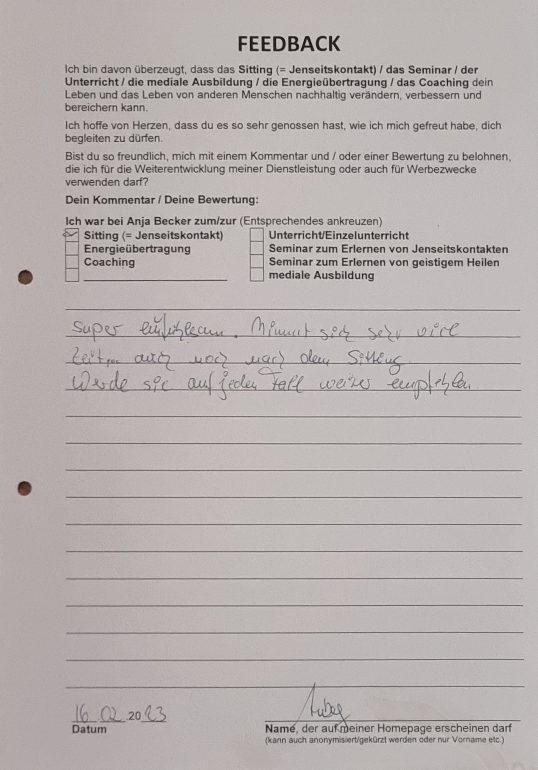 FEEDBACK
Ich bin davon überzeugt, dass das Sitting (= Jenseitskontakt) / das Seminar / der
Unterricht / die mediale Ausbildung / die Energieübertragung / das Coaching dein
Leben und das Leben von anderen Menschen nachhaltig verändern, verbessern und
bereichern kann.
Ich hoffe von Herzen, dass du es so sehr genossen hast, wie ich mich gefreut habe, dich
begleiten zu dürfen.
Bist du so freundlich, mich mit einem Kommentar und / oder einer Bewertung zu belohnen,
die ich für die Weiterentwicklung meiner Dienstleistung oder auch für Werbezwecke
verwenden darf?
Dein Kommentar / Deine Bewertung:
Ich war bei Anja Becker zum/zur (Entsprechendes ankreuzen)
Sitting (= Jenseitskontakt)
Energieübertragung
Coaching
Unterricht/Einzelunterricht
Seminar zum Erlernen von Jenseitskontakten
Seminar zum Erlernen von geistigem Heilen
mediale Ausbildung
Super einfühlsam. Nimmt sich sehr viel
Zeit, auch noch nach dem Sitting.
Werde sie auf jeden Fall weiter empfehlen.
16.02.2023
Datum
Name, der auf meiner Homepage erscheinen darf
(kann auch anonymisiert/gekürzt werden oder nur Vorname etc.)